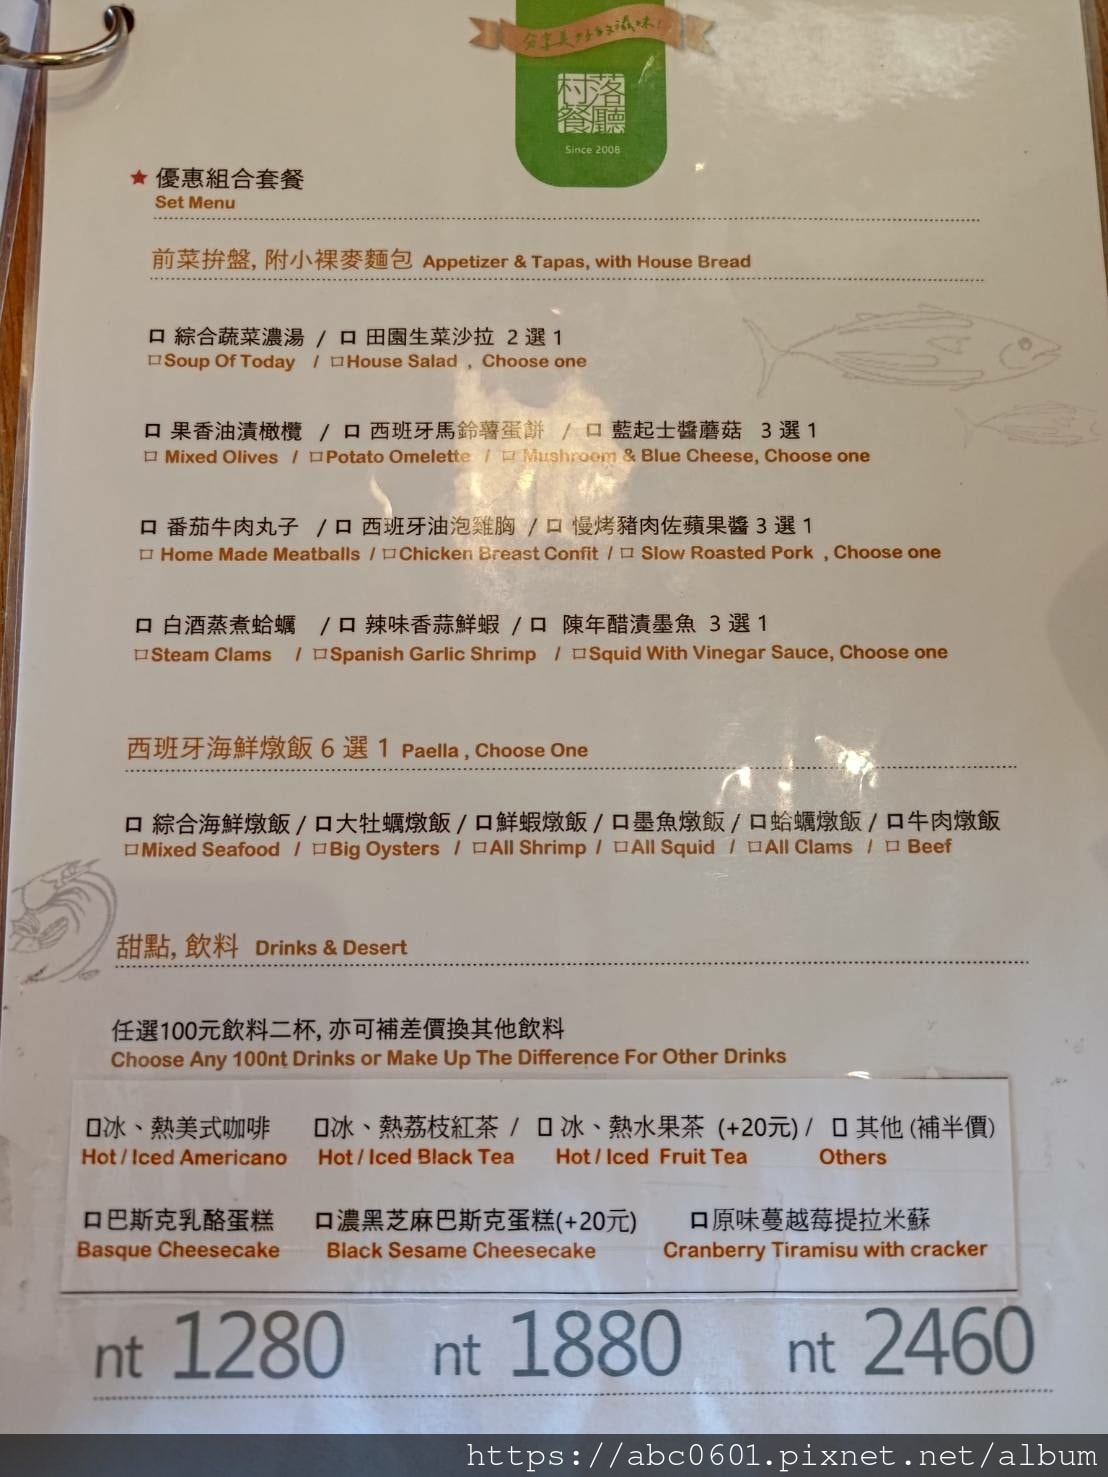 分享美好的滋味!
村落餐廳
Since 2008
★ 優惠組合套餐
Set Menu
前菜拚盤, 附小裸麥麵包 Appetizer & Tapas, with House Bread
□ 綜合蔬菜濃湯 / □ 田園生菜沙拉 2 選 1
□Soup Of Today / □House Salad , Choose one
□ 果香油漬橄欖 / □ 西班牙馬鈴薯蛋餅 / □ 藍起士醬蘑菇 3 選 1
□ Mixed Olives / □Potato Omelette / □ Mushroom & Blue Cheese, Choose one
□ 番茄牛肉丸子 / □ 西班牙油泡雞胸 / □ 慢烤豬肉佐蘋果醬 3 選 1
□ Home Made Meatballs / □Chicken Breast Confit / □ Slow Roasted Pork , Choose one
□ 白酒蒸煮蛤蠣 / □ 辣味香蒜鮮蝦 / □ 陳年醋漬墨魚 3 選 1
□Steam Clams / □Spanish Garlic Shrimp / □Squid With Vinegar Sauce, Choose one
西班牙海鮮燉飯 6 選 1 Paella , Choose One
□ 綜合海鮮燉飯 / □大牡蠣燉飯 / □鮮蝦燉飯 / □墨魚燉飯 / □蛤蠣燉飯 / □牛肉燉飯
□Mixed Seafood / □Big Oysters / □All Shrimp / □All Squid / □All Clams / □ Beef
甜點, 飲料 Drinks & Desert
任選100元飲料二杯, 亦可補差價換其他飲料
Choose Any 100nt Drinks or Make Up The Difference For Other Drinks
□冰、熱美式咖啡 □冰、熱荔枝紅茶 / □ 冰、熱水果茶 (+20元) / □ 其他 (補半價)
Hot / Iced Americano Hot / Iced Black Tea Hot / Iced Fruit Tea Others
□巴斯克乳酪蛋糕 □濃黑芝麻巴斯克蛋糕(+20元) □原味蔓越莓提拉米蘇
Basque Cheesecake Black Sesame Cheesecake Cranberry Tiramisu with cracker
nt 1280 nt 1880 nt 2460
https://abc0601.pixnet.net/album